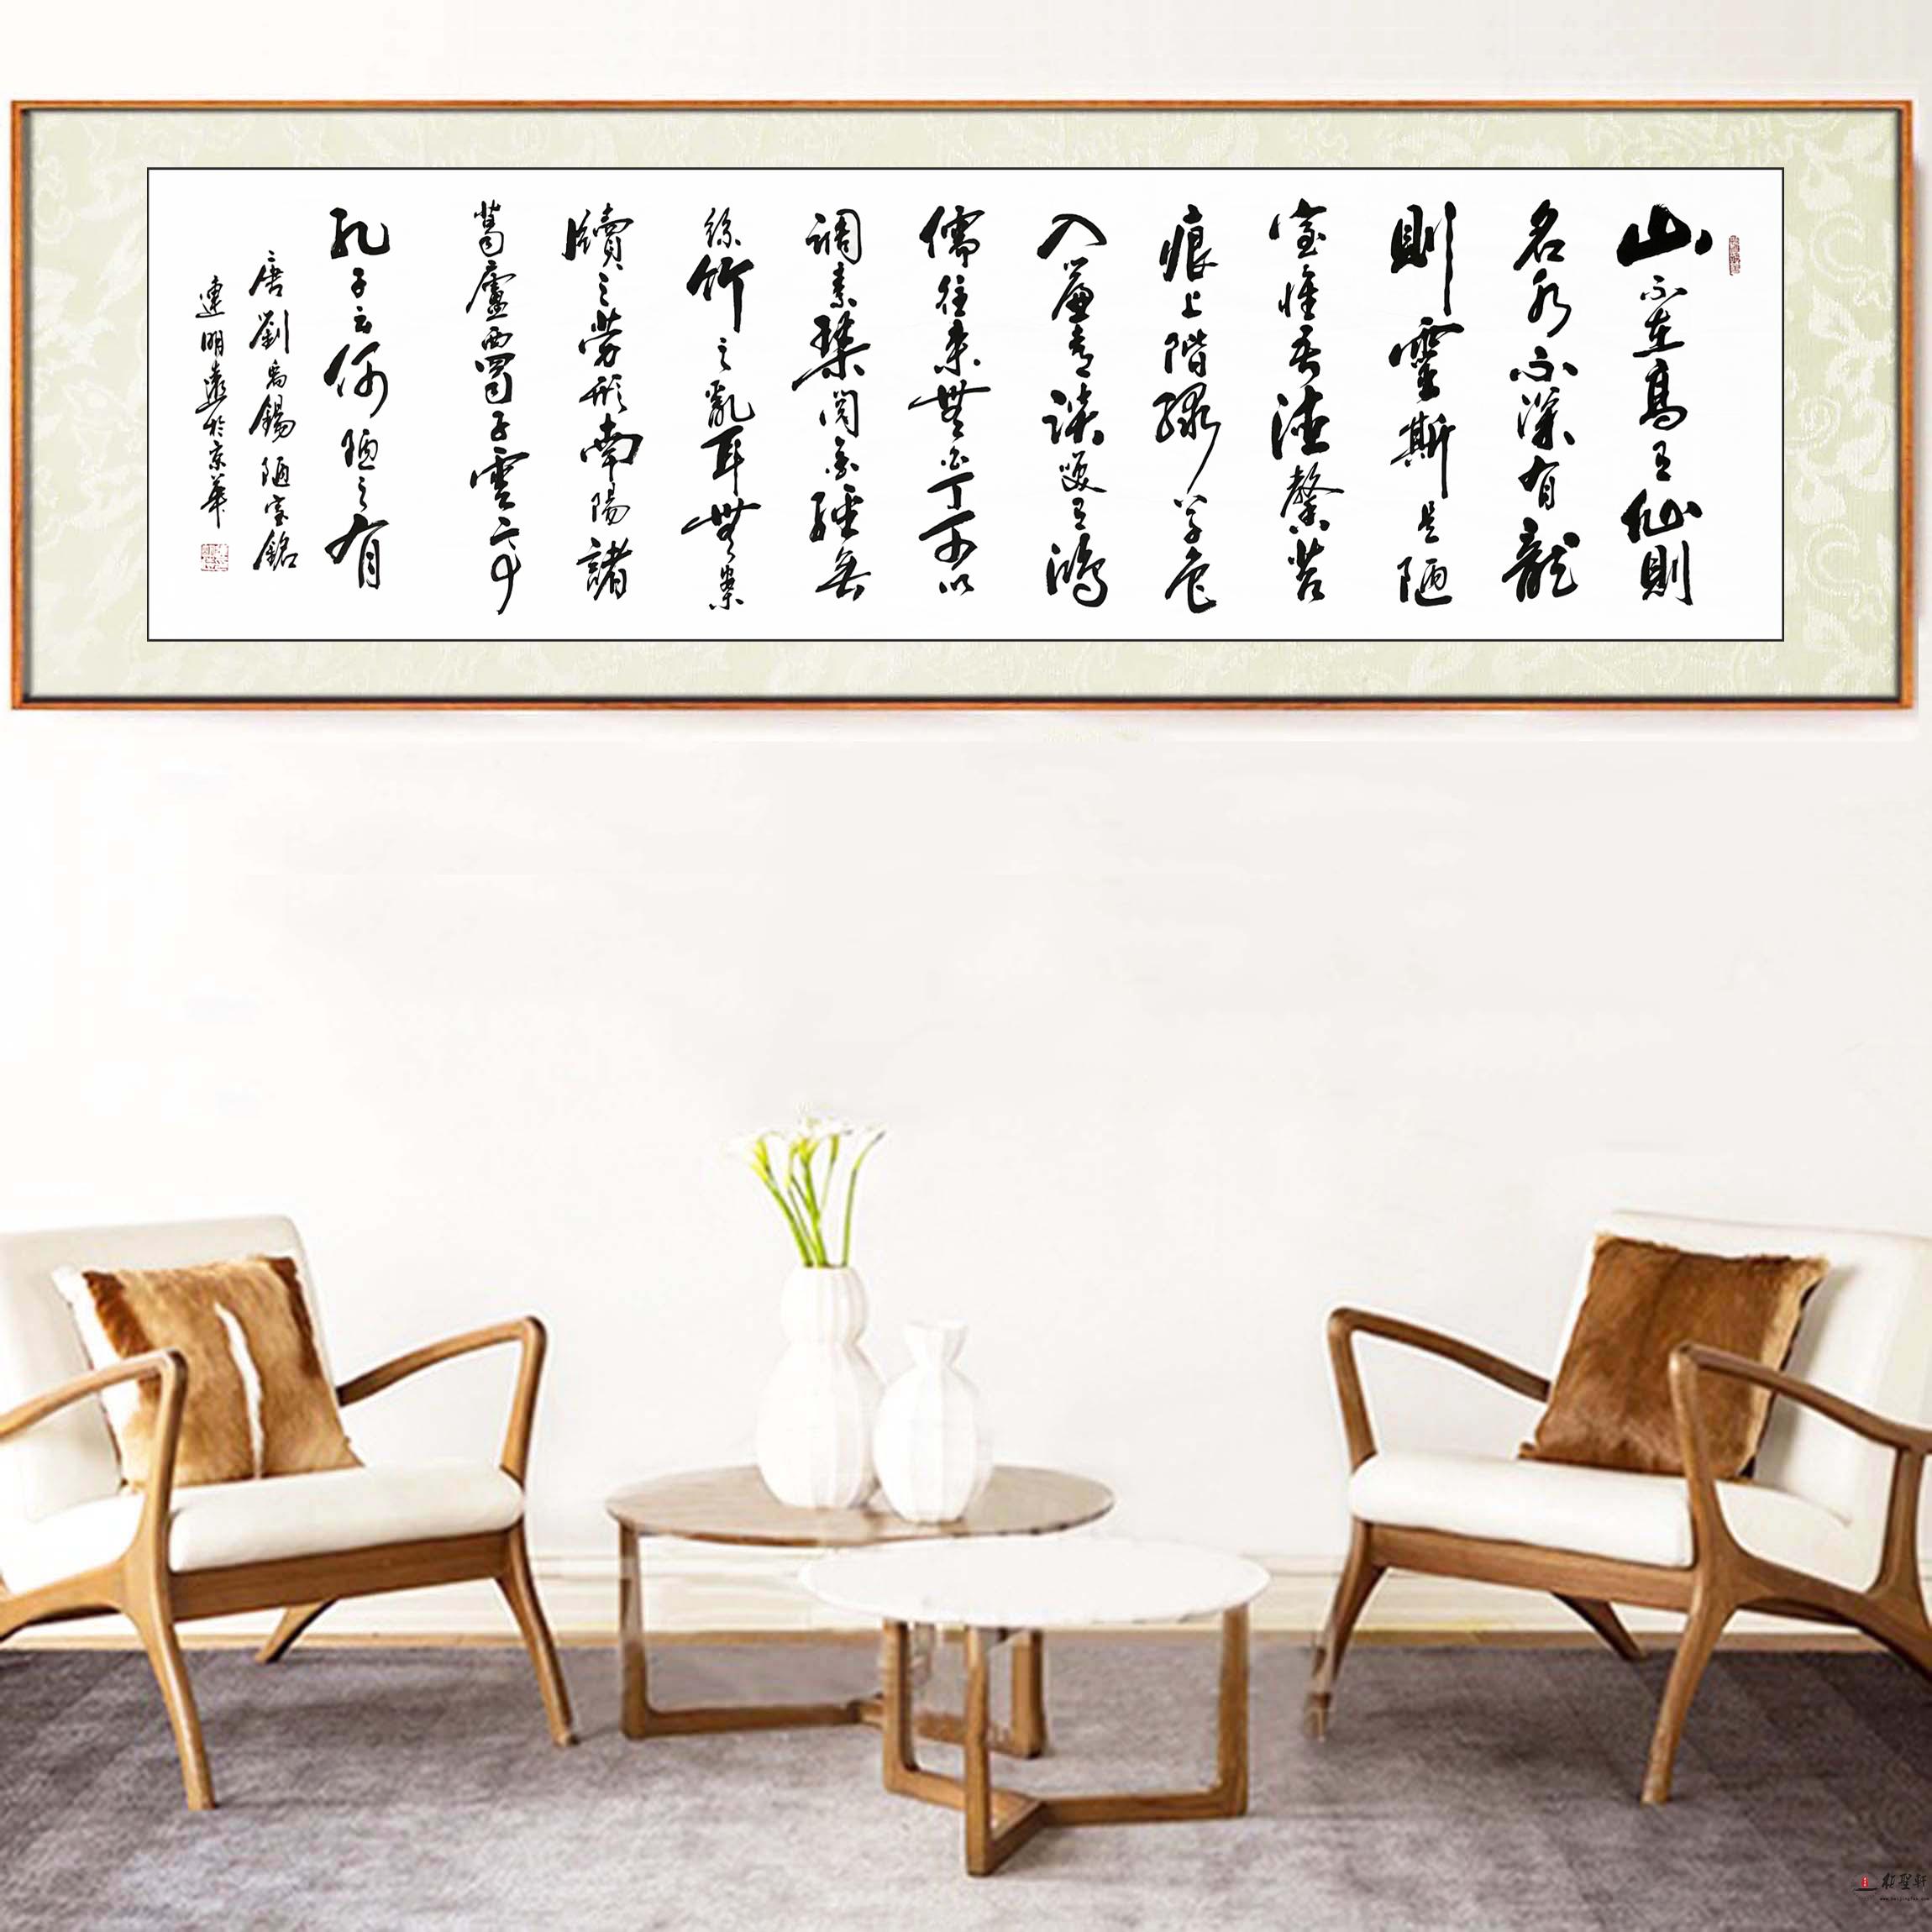 山不在高有仙則
名水不深有龍
則靈斯是陋
室惟吾德馨苔
痕上階綠草色
入簾青談笑有鴻
儒往來無白丁可以
調素琴閱金經無
絲竹之亂耳無案
牘之勞形南陽諸
葛廬西蜀子雲亭
孔子云何陋之有
唐劉禹錫陋室銘
連明遠於京華